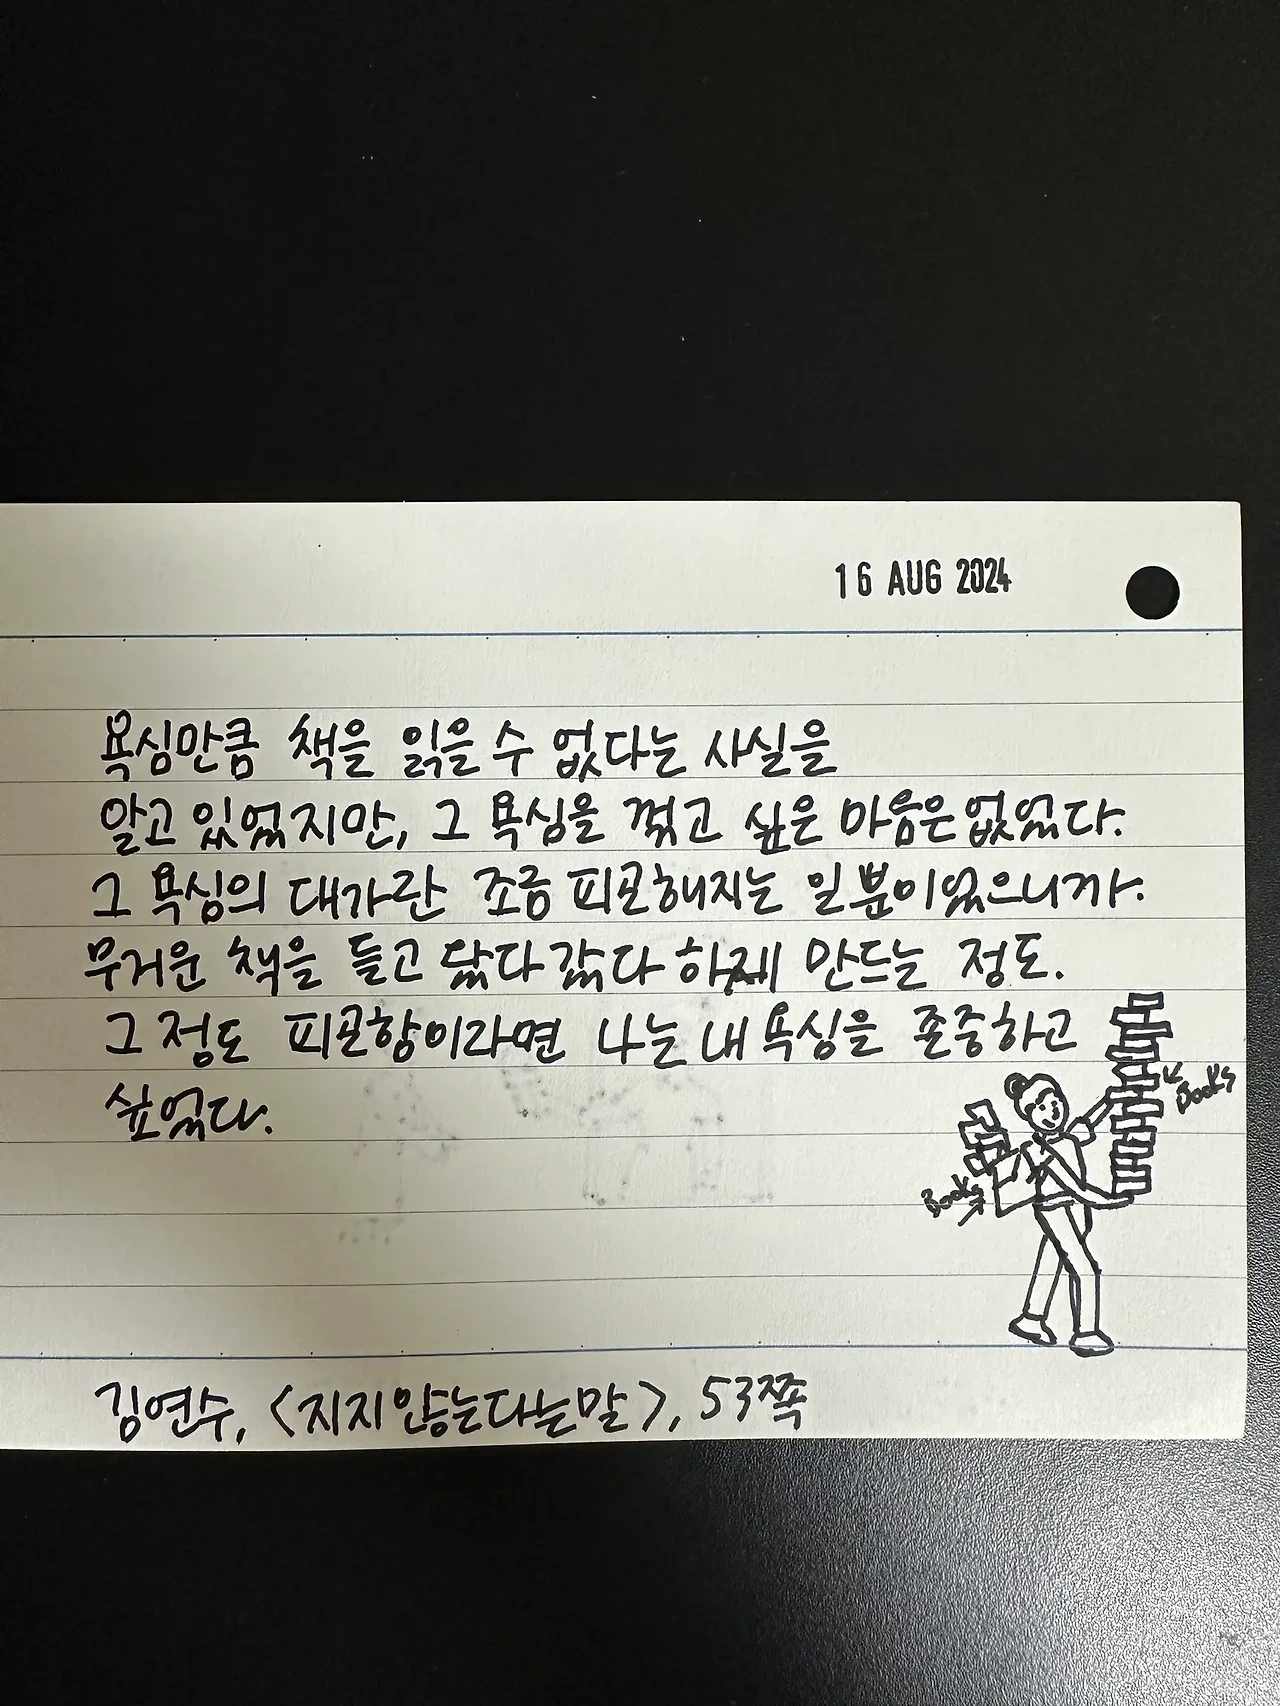 16 AUG 2024
욕심만큼 책을 읽을 수 없다는 사실을
알고 있었지만, 그 욕심을 꺾고 싶은 마음은 없었다.
그 욕심의 대가란 조금 피곤해지는 일뿐이었으니까.
무거운 책을 들고 왔다갔다 하게 만드는 정도.
그 정도 피곤함이라면 나는 내 욕심을 존중하고
싶었다.
Books
Books
김연수, <지지않는다는말>, 53쪽